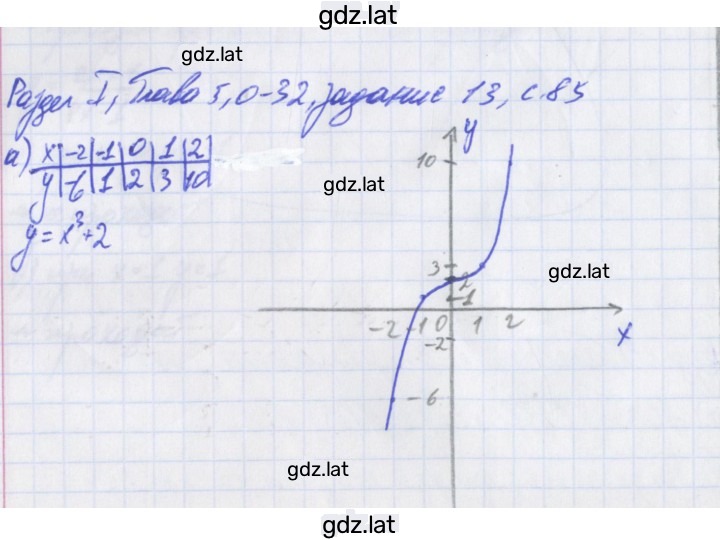 gdz.lat
gdz.lat
Раздел I, Глава 5, О-32, задание 13, с.85
а) x -2 -1 0 1 2
y -6 1 2 3 10
y = x³+2
y
10
gdz.lat
3
gdz.lat
2
1
-2 -1 0 1 2
x
-2
-6
gdz.lat
gdz.lat